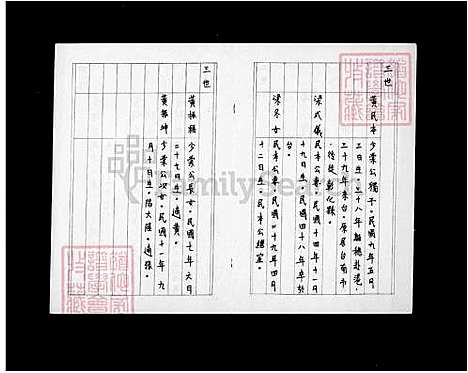 三世
黃民本 少棠公獨子。民國九年五月
三日生。三十八年離穗赴港。
三十九年來台。原居台南市
後徙彰化縣。
梁式儀 民本公妻。民國十四年十一月
十九日生。民國四十八年卒於
台。
梁冬女 民本公妻。民國二十九年四月
十二日生。民本公繼室。
三世
黃振 少棠公長女。民國七年六月
二十七日生。適黃。
黃振坤 少棠公次女。民國十一年九
月十日生。陷大陸。適張。
FamilySearch